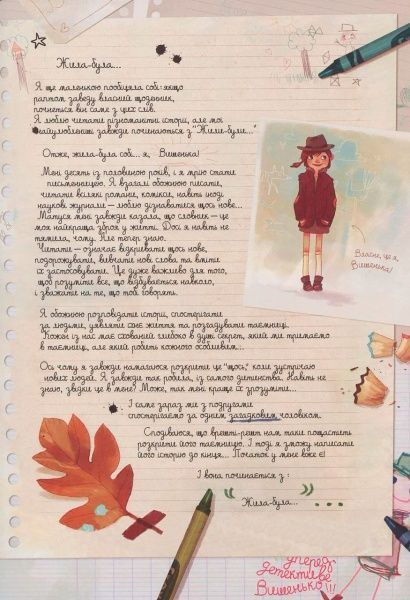 Жила-була...
Я ще маленькою пообіцяла собі: якщо
раптом заведу власний щоденник,
почнеться він саме з цих слів.
Я люблю читати різноманітні історії, але мої
найулюбленіші завжди починаються з "Жили-були..."
Отже, жила-була собі... я, Вишенька!
Мені десять із половиною років, і я мрію стати
письменницею. Я взагалі обожнюю писати,
читати всілякі романи, комікси, навіть іноді
наукові журнали – люблю дізнаватися щось нове...
Матуся мені завжди казала, що словник – це
моя найкраща зброя у житті. Досі я навіть не
тямила, чому. Але тепер знаю.
Читати – означає відкривати щось нове,
подорожувати, вивчати нові слова та вміти
їх застосовувати. Це дуже важливо для того,
щоб розуміти все, що відбувається навколо,
і зважати на те, що той говорять.
Власне, це я,
Вишенька!
Я обожнюю розповідати історії, спостерігати
за людьми, уявляти їхнє життя та розгадувати таємниці.
Кожен із нас має схований глибоко в душі секрет, який ми тримаємо
в таємниці, але який робить кожного особливим...
Ось чому я завжди намагаюся розкрити це "щось", коли зустрічаю
нових людей. Я завжди так робила, із самого дитинства. Навіть не
знаю, звідки це в мене? Може, так мені краще їх зрозуміти...
І саме зараз ми з подругами
спостерігаємо за одним загадковим чоловіком.
Сподіваюся, що врешті-решт нам таки пощастить
розкрити його таємницю. І тоді я зможу написати
його історію до кінця... Початок у мене вже є!
І вона починається з:
" Жила-була... "
...
Уперед,
детективе
Вишенько!!!